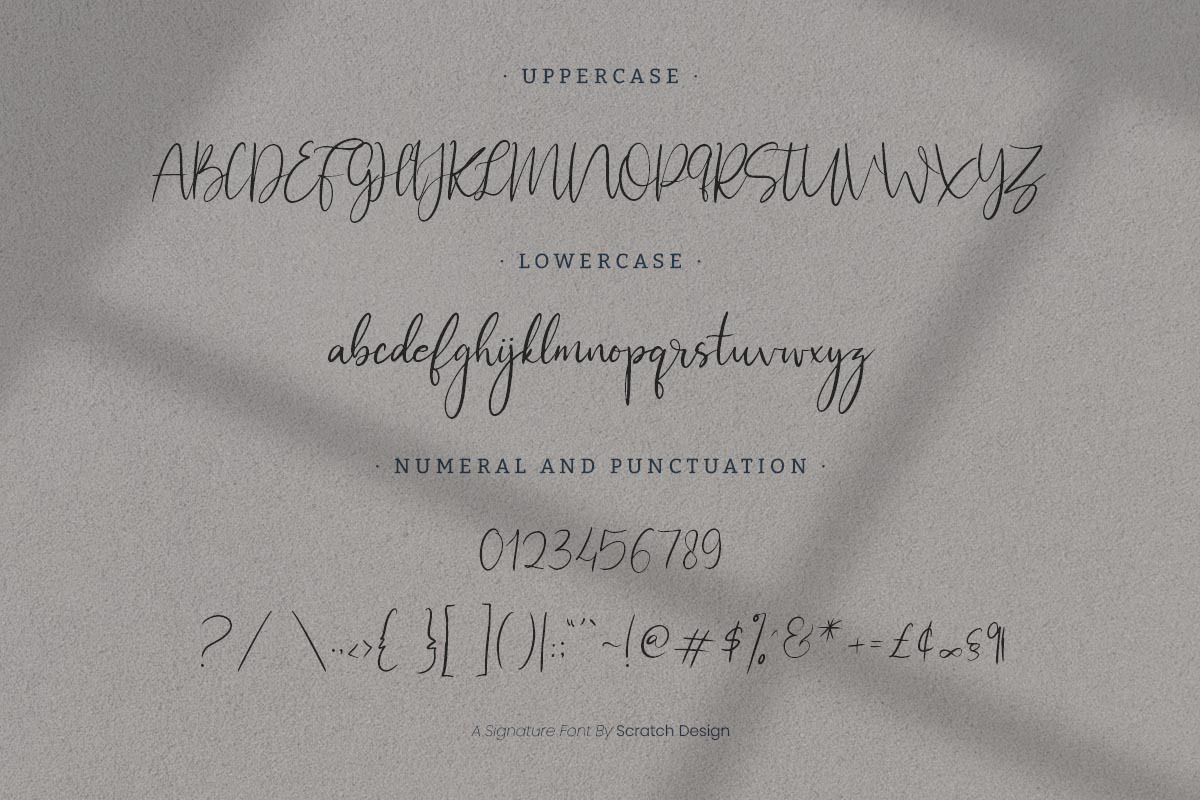 · UPPERCASE ·
ABCDEFGHIJKLMNOPQRSTUVWXYZ
· LOWERCASE ·
abcdefghijklmnopqrstuvwxyz
· NUMERAL AND PUNCTUATION ·
0123456789
?/\.,<>{}[]()|:;“”‘~!@#$%^&*+=£¢∞§¶
A Signature Font By Scratch Design